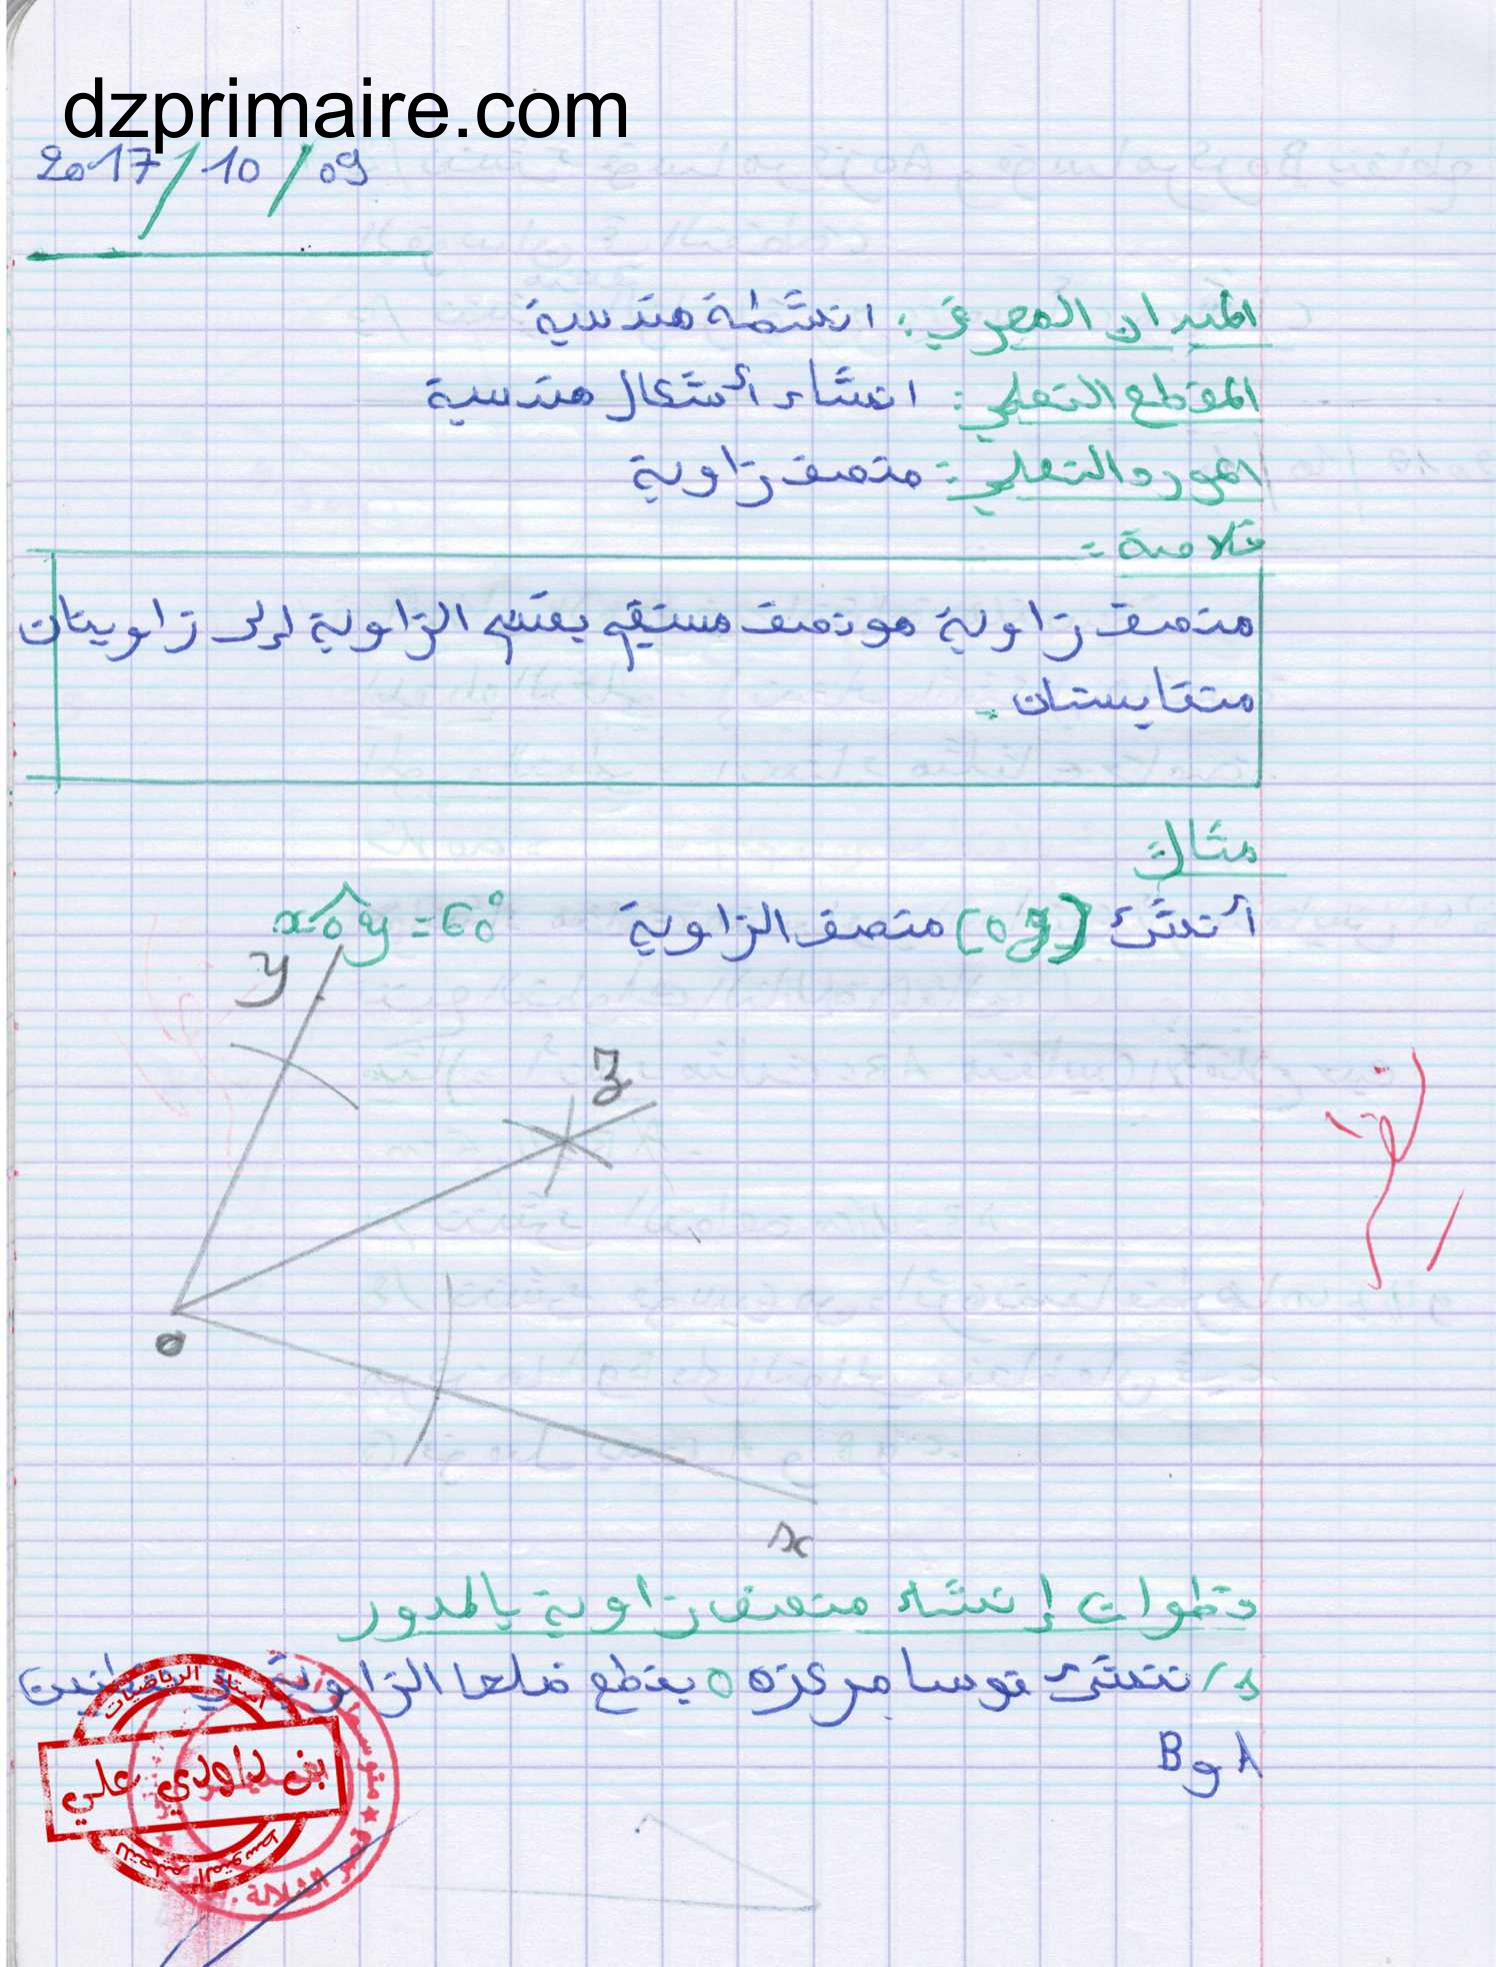 dzprimaire.com
2017/10/09
الميدان المعرفي: انشطة هندسية
المقطع التعلمي: انشاء أشكال هندسية
المورد التعلمي: منصف زاوية
خلاصة:
منصف زاوية هو نصف مستقيم يقسم الزاوية إلى زاويتان
متقايستان.
مثال:
أنشئ [oz) منصف الزاوية xoy = 60°
y
z
o
x
خطوات إنشاء منصف زاوية بالمدور
1/ ننشئ قوسا مركزه o يقطع ضلعا الزاوية في نقطتين
A و B
أستاذ الرياضيات
بن داودي علي
للتعليم المتوسط